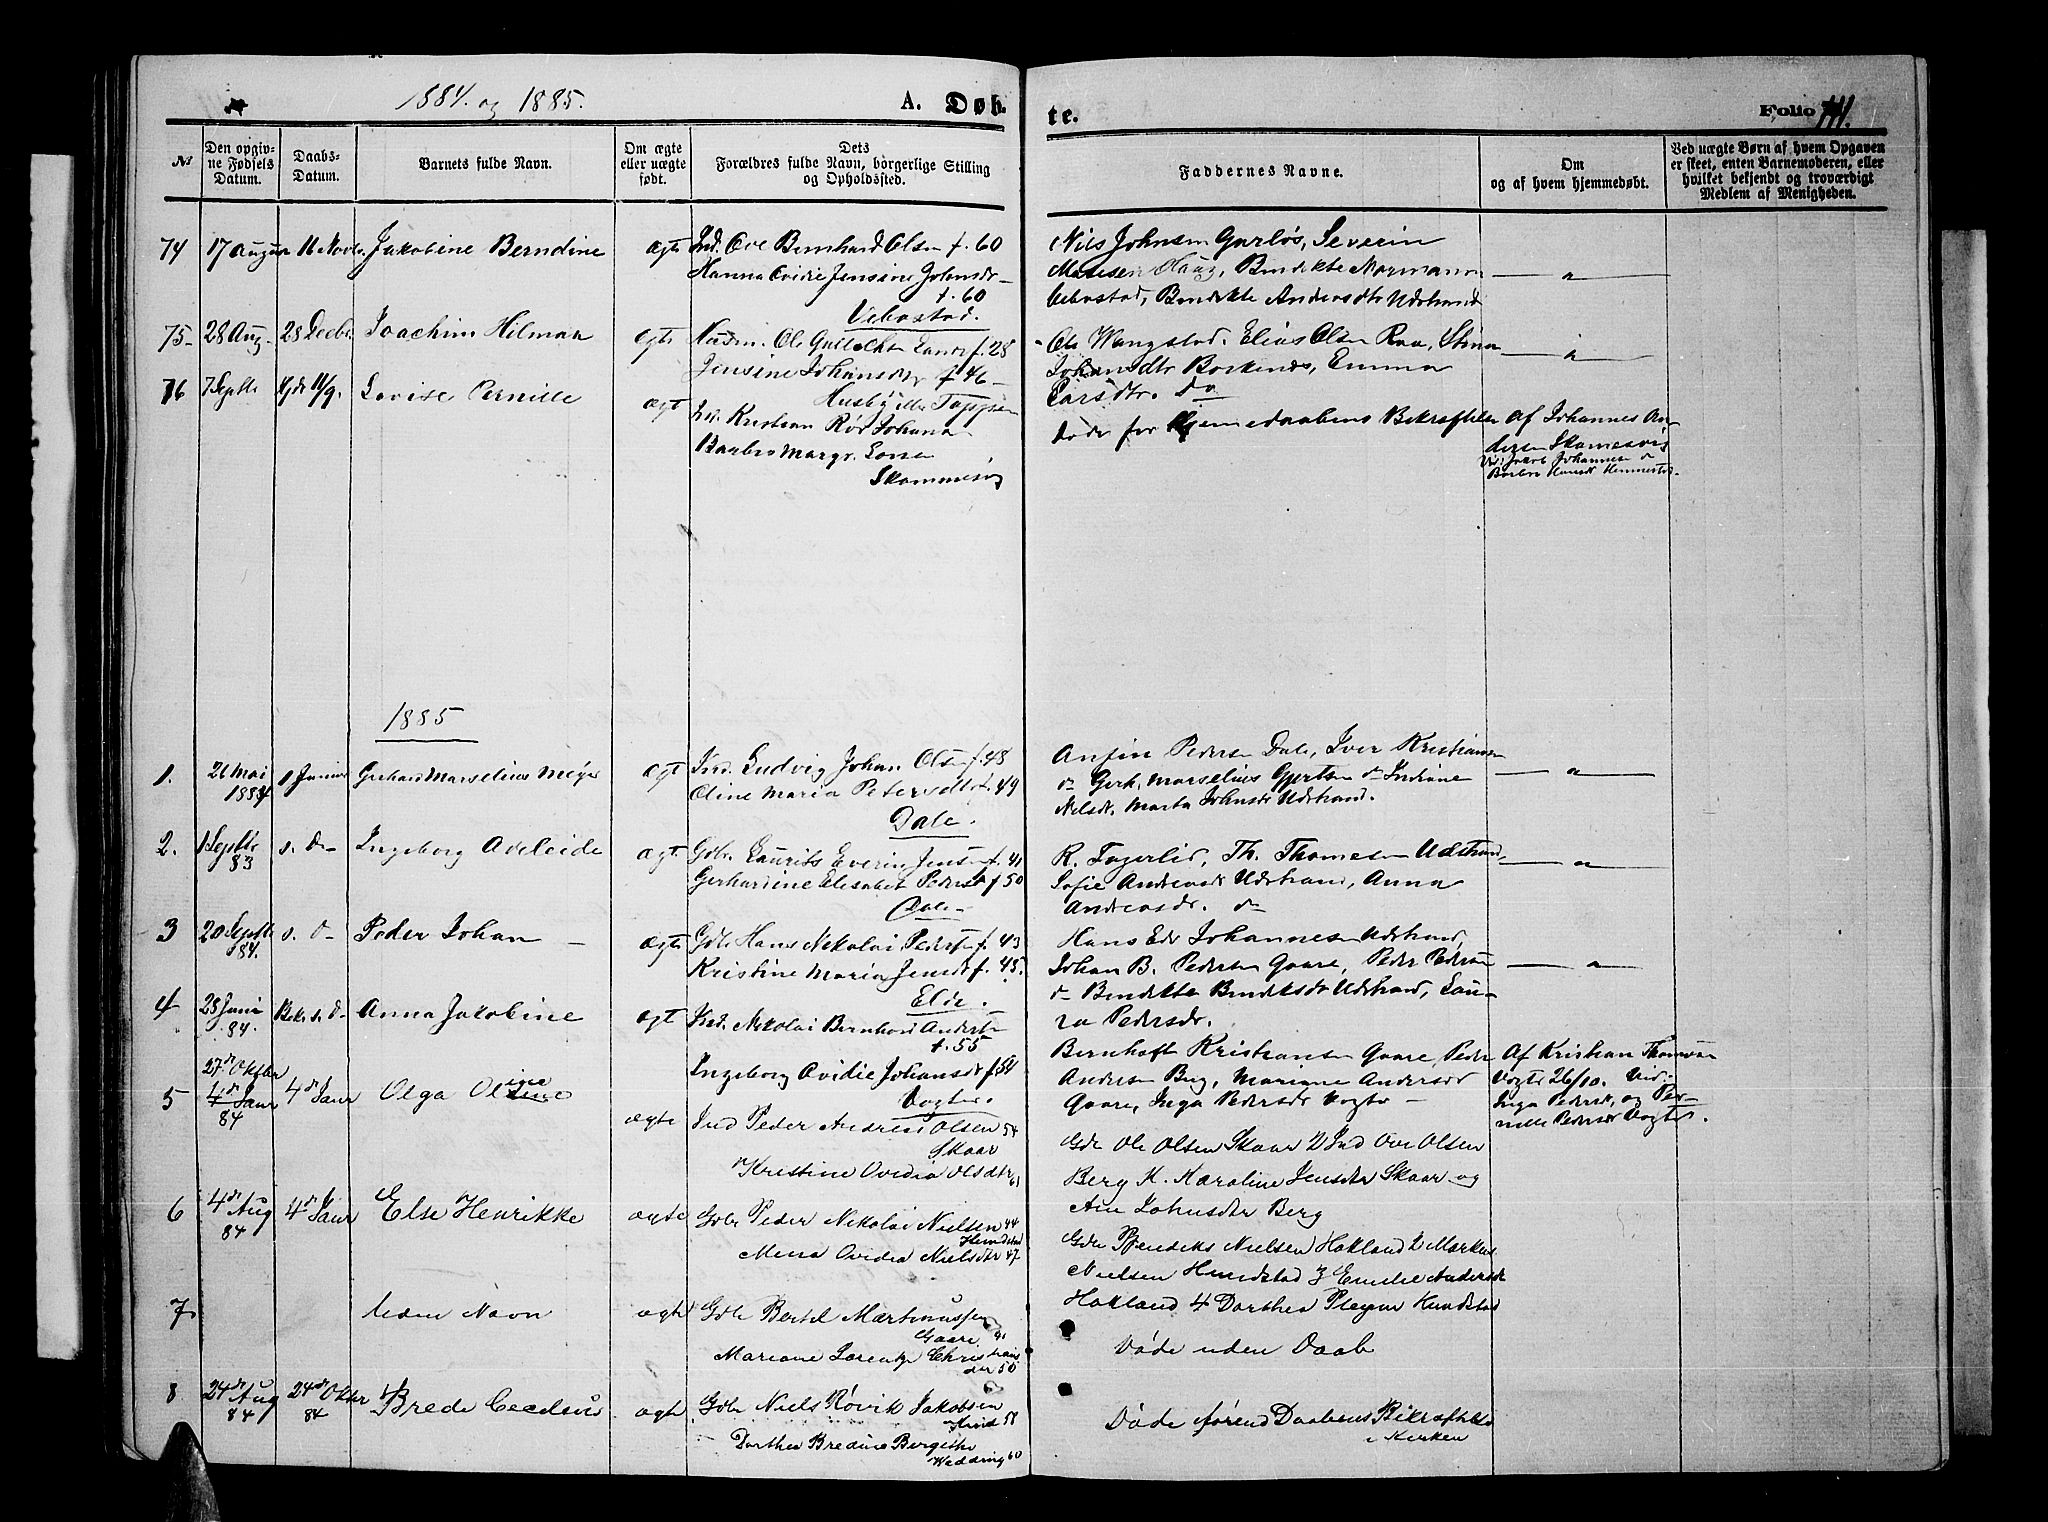 1884. og 1885.
A. Døb-
te.
Folio 111.
№
Den opgiv-
ne Fødsels
Datum.
Daabs-
Datum.
Barnets fulde Navn.
Om ægte
eller uægte
født.
Dets
Forældres fulde Navn, borgerlige Stilling
og Opholdssted.
Faddernes Navne.
Om
og af hvem hjemmedøbt.
Ved uægte Børn af hvem Opgaven
er skeet, enten Barnemoderen, eller
hvilket bekjendt og troværdigt
Medlem af Menigheden.
74
17 August
16 Novbr
Jakobine Berndine
ægte
Ind. Ove Bernhard Olsen f. 60
Hanna Ovidie Jensine Johnsdr
f. 60
Vebostad.
Nils Johnsen Gurløs, Severin
Haug, Bendikte Normann
Vebostad, Bendikte Andersdtr Udstrand
75
28 Aug
28 Decbr
Joachim Hilmar
ægte
Husm. Ole f. 28
Jensine Johansdtr f 46
Husby
Ole Wangstad, Elias Olsen Raa, Stina
Johansdtr Boskenes, Emma
Larsdtr. do
76
7 Septb
Hjd 11/9.
Lovise Pernille
ægt
Ind. Kristian Johana
Barbro Margr.
Død før Hjemmedaabens Bekræftelse
Af Johannes An-
dersen
Johannesen do
Barbra Hansdr Hemmestad.
1885
1.
26 Mai
1884
1 Januar
Gerhard Marselius Meyer
ægt
Ind. Ludvig Johan Olsen f. 48
Oline Maria Petersdtr. 49
Dale.
Anfin Pedersen Dale, Iver Kristiansen
do Gerh. Marselius Gjertsen do Indiane
Nilsdr. Marta Johnsdr Udstrand.
2.
1 Septbr
83
s. D
Ingeborg Adeleide
ægt.
Gdbr. Laurits Everin Jensen f. 41
Gerhardine Elisabet Pedersd f 50
Dale
R. Fagerlid, Th. Thomesen Udstrand,
Sofie Andreasdr Udstrand, Anna
Andreasdr. do
3
20 Septb
84.
s. D
Peder Johan
ægte
Gdb Hans Nikolai Pedersen f. 43
Kristine Maria Jensdt f. 45.
Elde.
Hans Edv Johannesen Udstrand,
Johan B. Pedersen Gaare, Peder Pedersen
do Bendikte Bendiksdr Udstrand, Lau-
ra Pedersdr.
4
28 Juni
84.
Bek. s. D
Anna Jakobine
ægt
Ind. Nikolai Bernhard Anders
f. 55
Ingeborg Ovidie Johansdt f. 54
Vogter.
Bernhoft Kristiansen Gaare, Peder
Andersen Berg, Mariane Andersdr
Gaare, Inga Pedersdr Vogte
Af Kristian Thomassen
Vogte 26/10. Vid:
Inga Pedersd, og Per-
nille Pedersdr Vogter.
5
27de Oktbr
4de Janr
84
4de Janr
Olga Oline
ægte
Ind Peder Andreas Olsen 54
Skaar
Kristine Ovidia Olsdtr 61
Gdr Ole Olsen Skaar 2 Ind Ove Olsen
Berg K. Karoline Jensdtr Skaar og
Ane Johnsdtr Berg
6
4de Aug
84
4de Janr
Else Henrikke
ægte
Gdbr Peder Nikolai Nielsen 44
Hemdstad
Mena Ovidia Nielsdtr 47
Gdr Bendiks Nielsen Hokland 2 Markus
Nielsen Hundstad 3 Emelie Andersdr
Hokland 4 Dorthea Hundstad
7
Uden Navn
ægte
Gdbr Bertel Martinussen
Gaare 41
Mariane Lorentze Christians
dtr 50
Døde uden Daab
8
24de Aug
84
24de Oktbr
84
Brede Cecelius
ægte
Gdbr Niels Røvik Jakobsen
58
Dorthea Bredine Bergithe
Wedding 60
Døde førend Daabens Bekræftelse
i Kirken